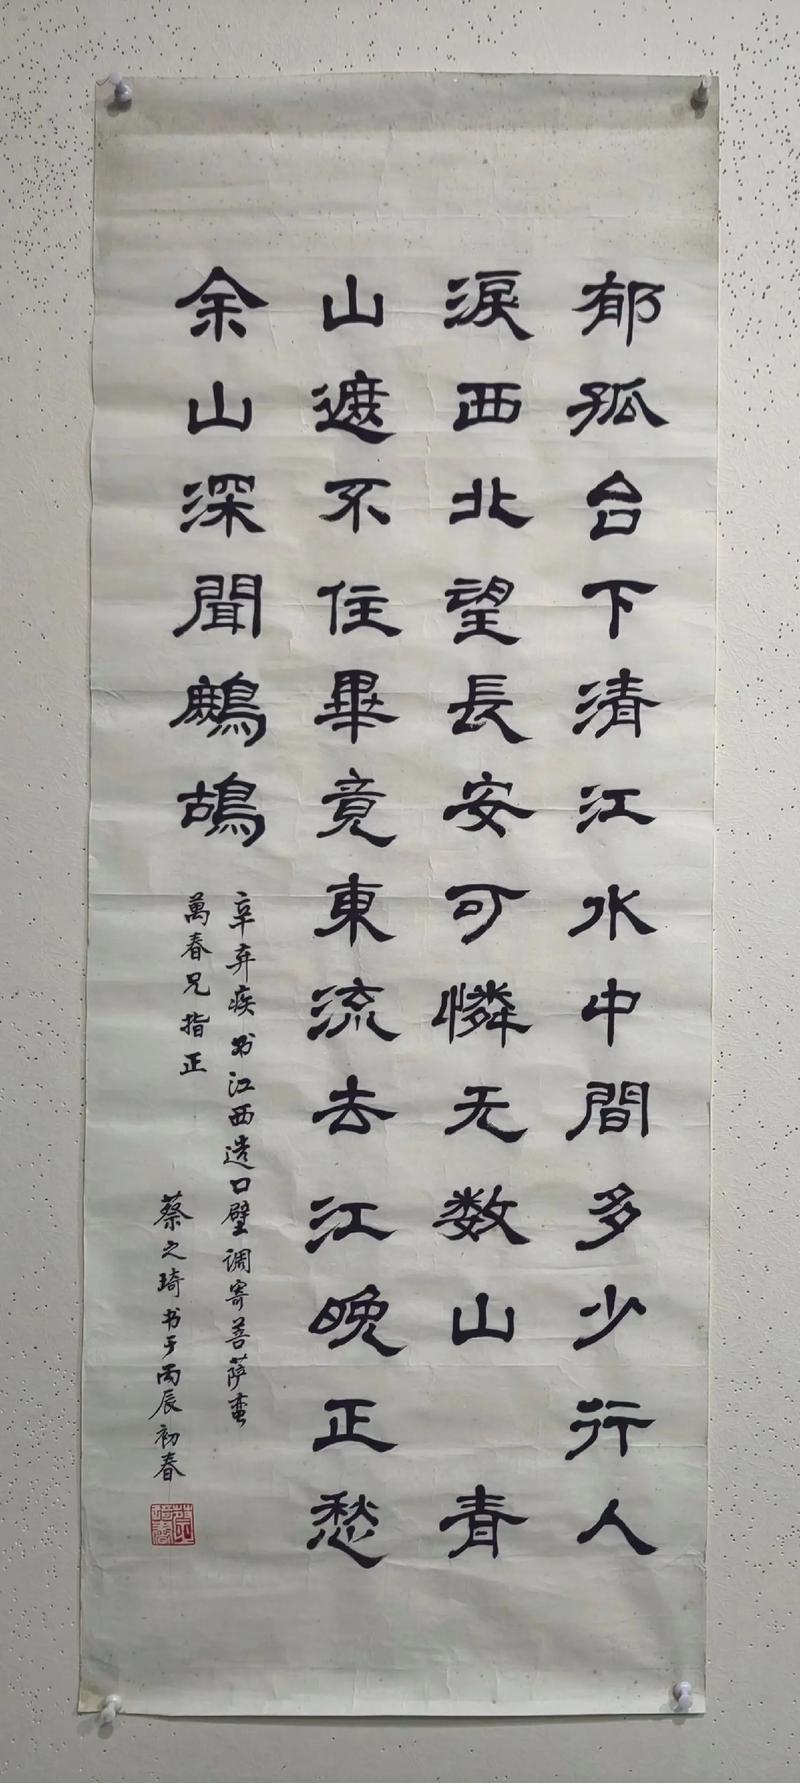 郁孤台下清江水中間多少行人
淚西北望長安可憐无数山青
山遮不住畢竟東流去江晚正愁
余山深聞鷓鴣
辛弃疾书江西造口壁调寄菩萨蛮
萬春兄指正
蔡之琦书于丙辰初春